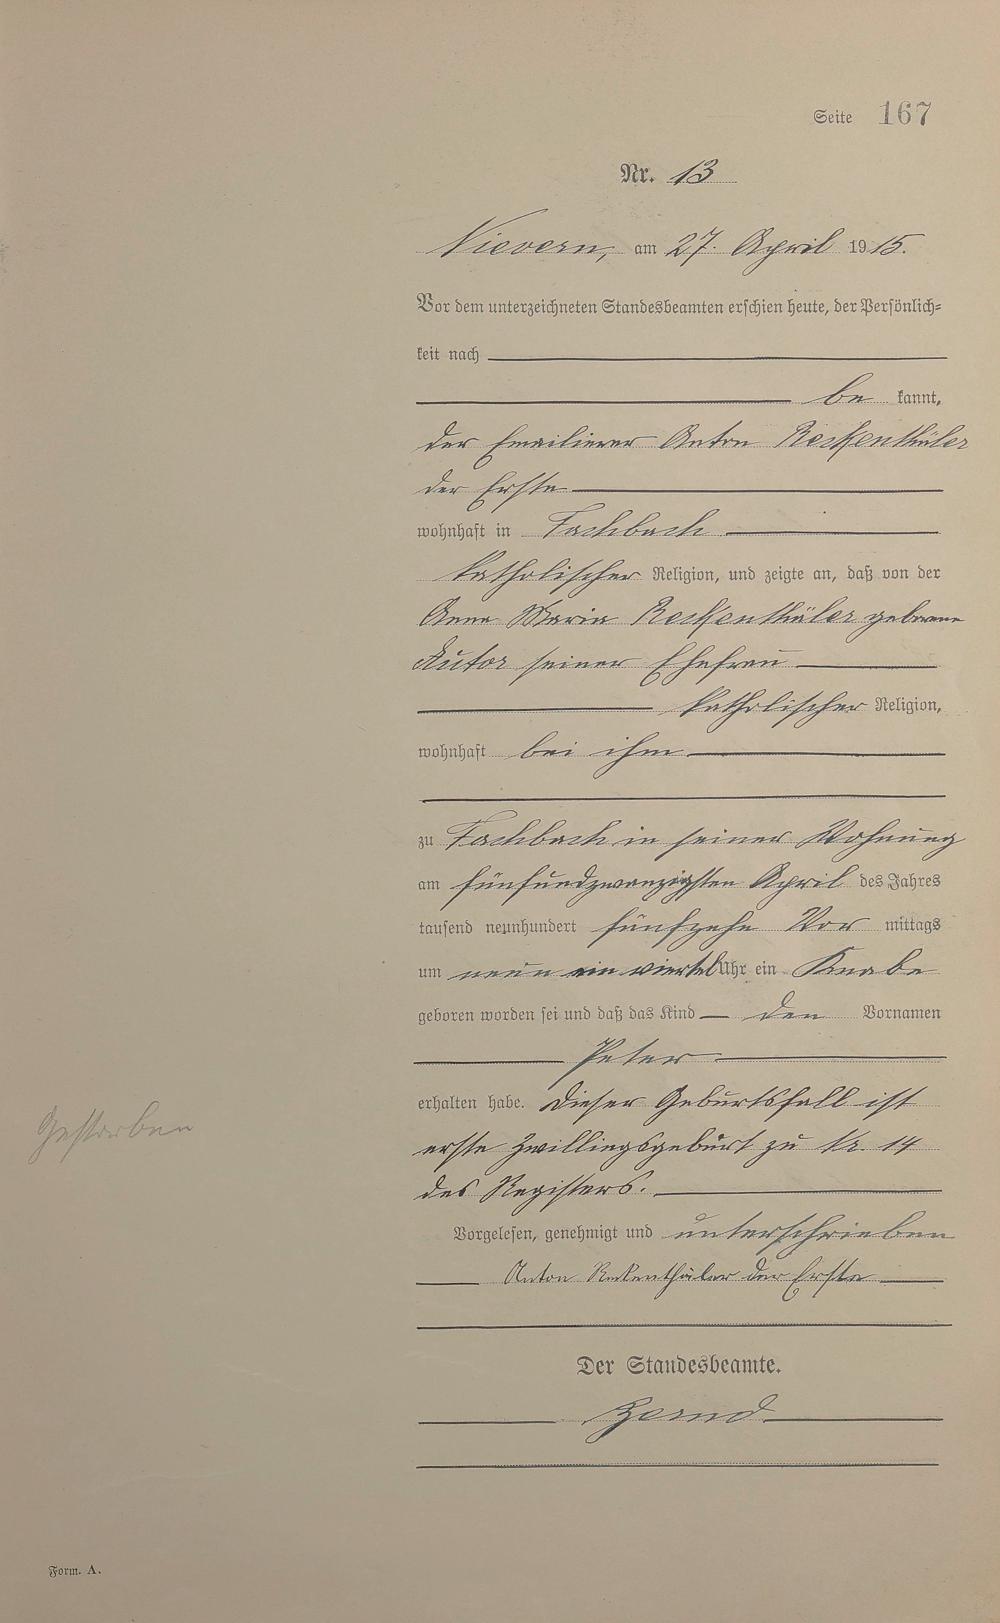 Seite 167
Nr. 13
Nievern, am 27. April 1915.
Vor dem unterzeichneten Standesbeamten erschien heute, der Persönlich-
keit nach
be kannt,
der Emailierer Anton Reckenthäler
der Erste
wohnhaft in Fachbach
katholischer Religion, und zeigte an, daß von der
Anna Maria Reckenthäler geborene
Autor seiner Ehefrau
katholischer Religion,
wohnhaft bei ihm
zu Fachbach in seiner Wohnung
am fünfundzwanzigsten April des Jahres
tausend neunhundert fünfzehn Vor mittags
um neun ein viertel Uhr ein Knabe
geboren worden sei und daß das Kind den Vornamen
Peter
erhalten habe. Dieser Geburtsfall ist
erste Zwillingsgeburt zu Nr. 14
des Registers.
Gestorben
Vorgelesen, genehmigt und unterschrieben
Anton Rekenthäler der Erste
Der Standesbeamte.
Form. A.